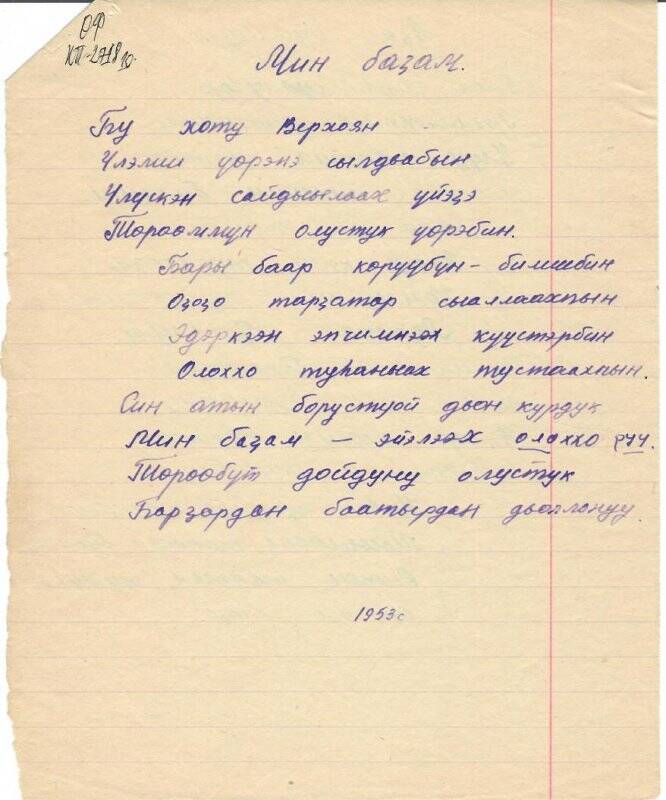 ОФ
КП-2718/10
Мин баҕам.
Бу хоту Верхоян
Үлэлии үөрэнэ сылдьабын
Үлүскэн сайдыылаах үйэҕэ
Төрөөммүн олустук үөрэбин.
Бары баар көрүүбүн - билиибин
Оҕоҕо тарҕатар сыаллаахпын
Эдэркээн эпчимнээх күүстэрбин
Олоххо туһаныах тустаахпын.
Син атын борустуой дьон курдук
Мин баҕам — эйэлээх олоххо
Төрөөбүт дойдуну олустук
Барҕардан баатырдан дьоллонуу
1953с